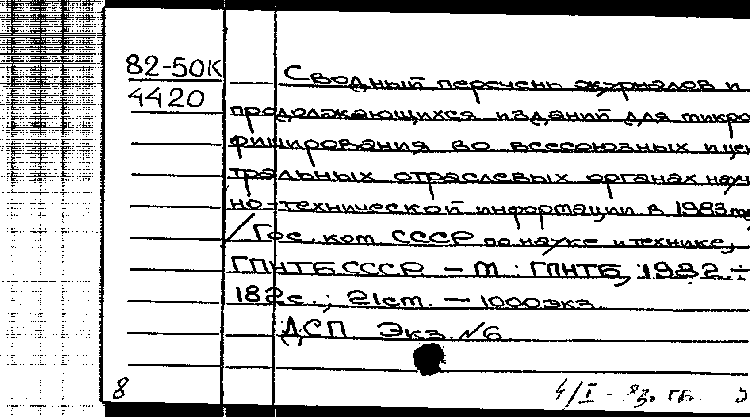 82-50К
4420
Сводный перечень журналов и
продолжающихся изданий для микро
фиширования во всесоюзных и цен
тральных отраслевых органах науч
но-технической информации в 1983 году
/ Гос. ком. СССР по науке и технике,
ГПНТБ СССР – М : ГПНТБ, 1982 –
182с.; 21cm. – 1000экз.
ДСП Экз №6
8